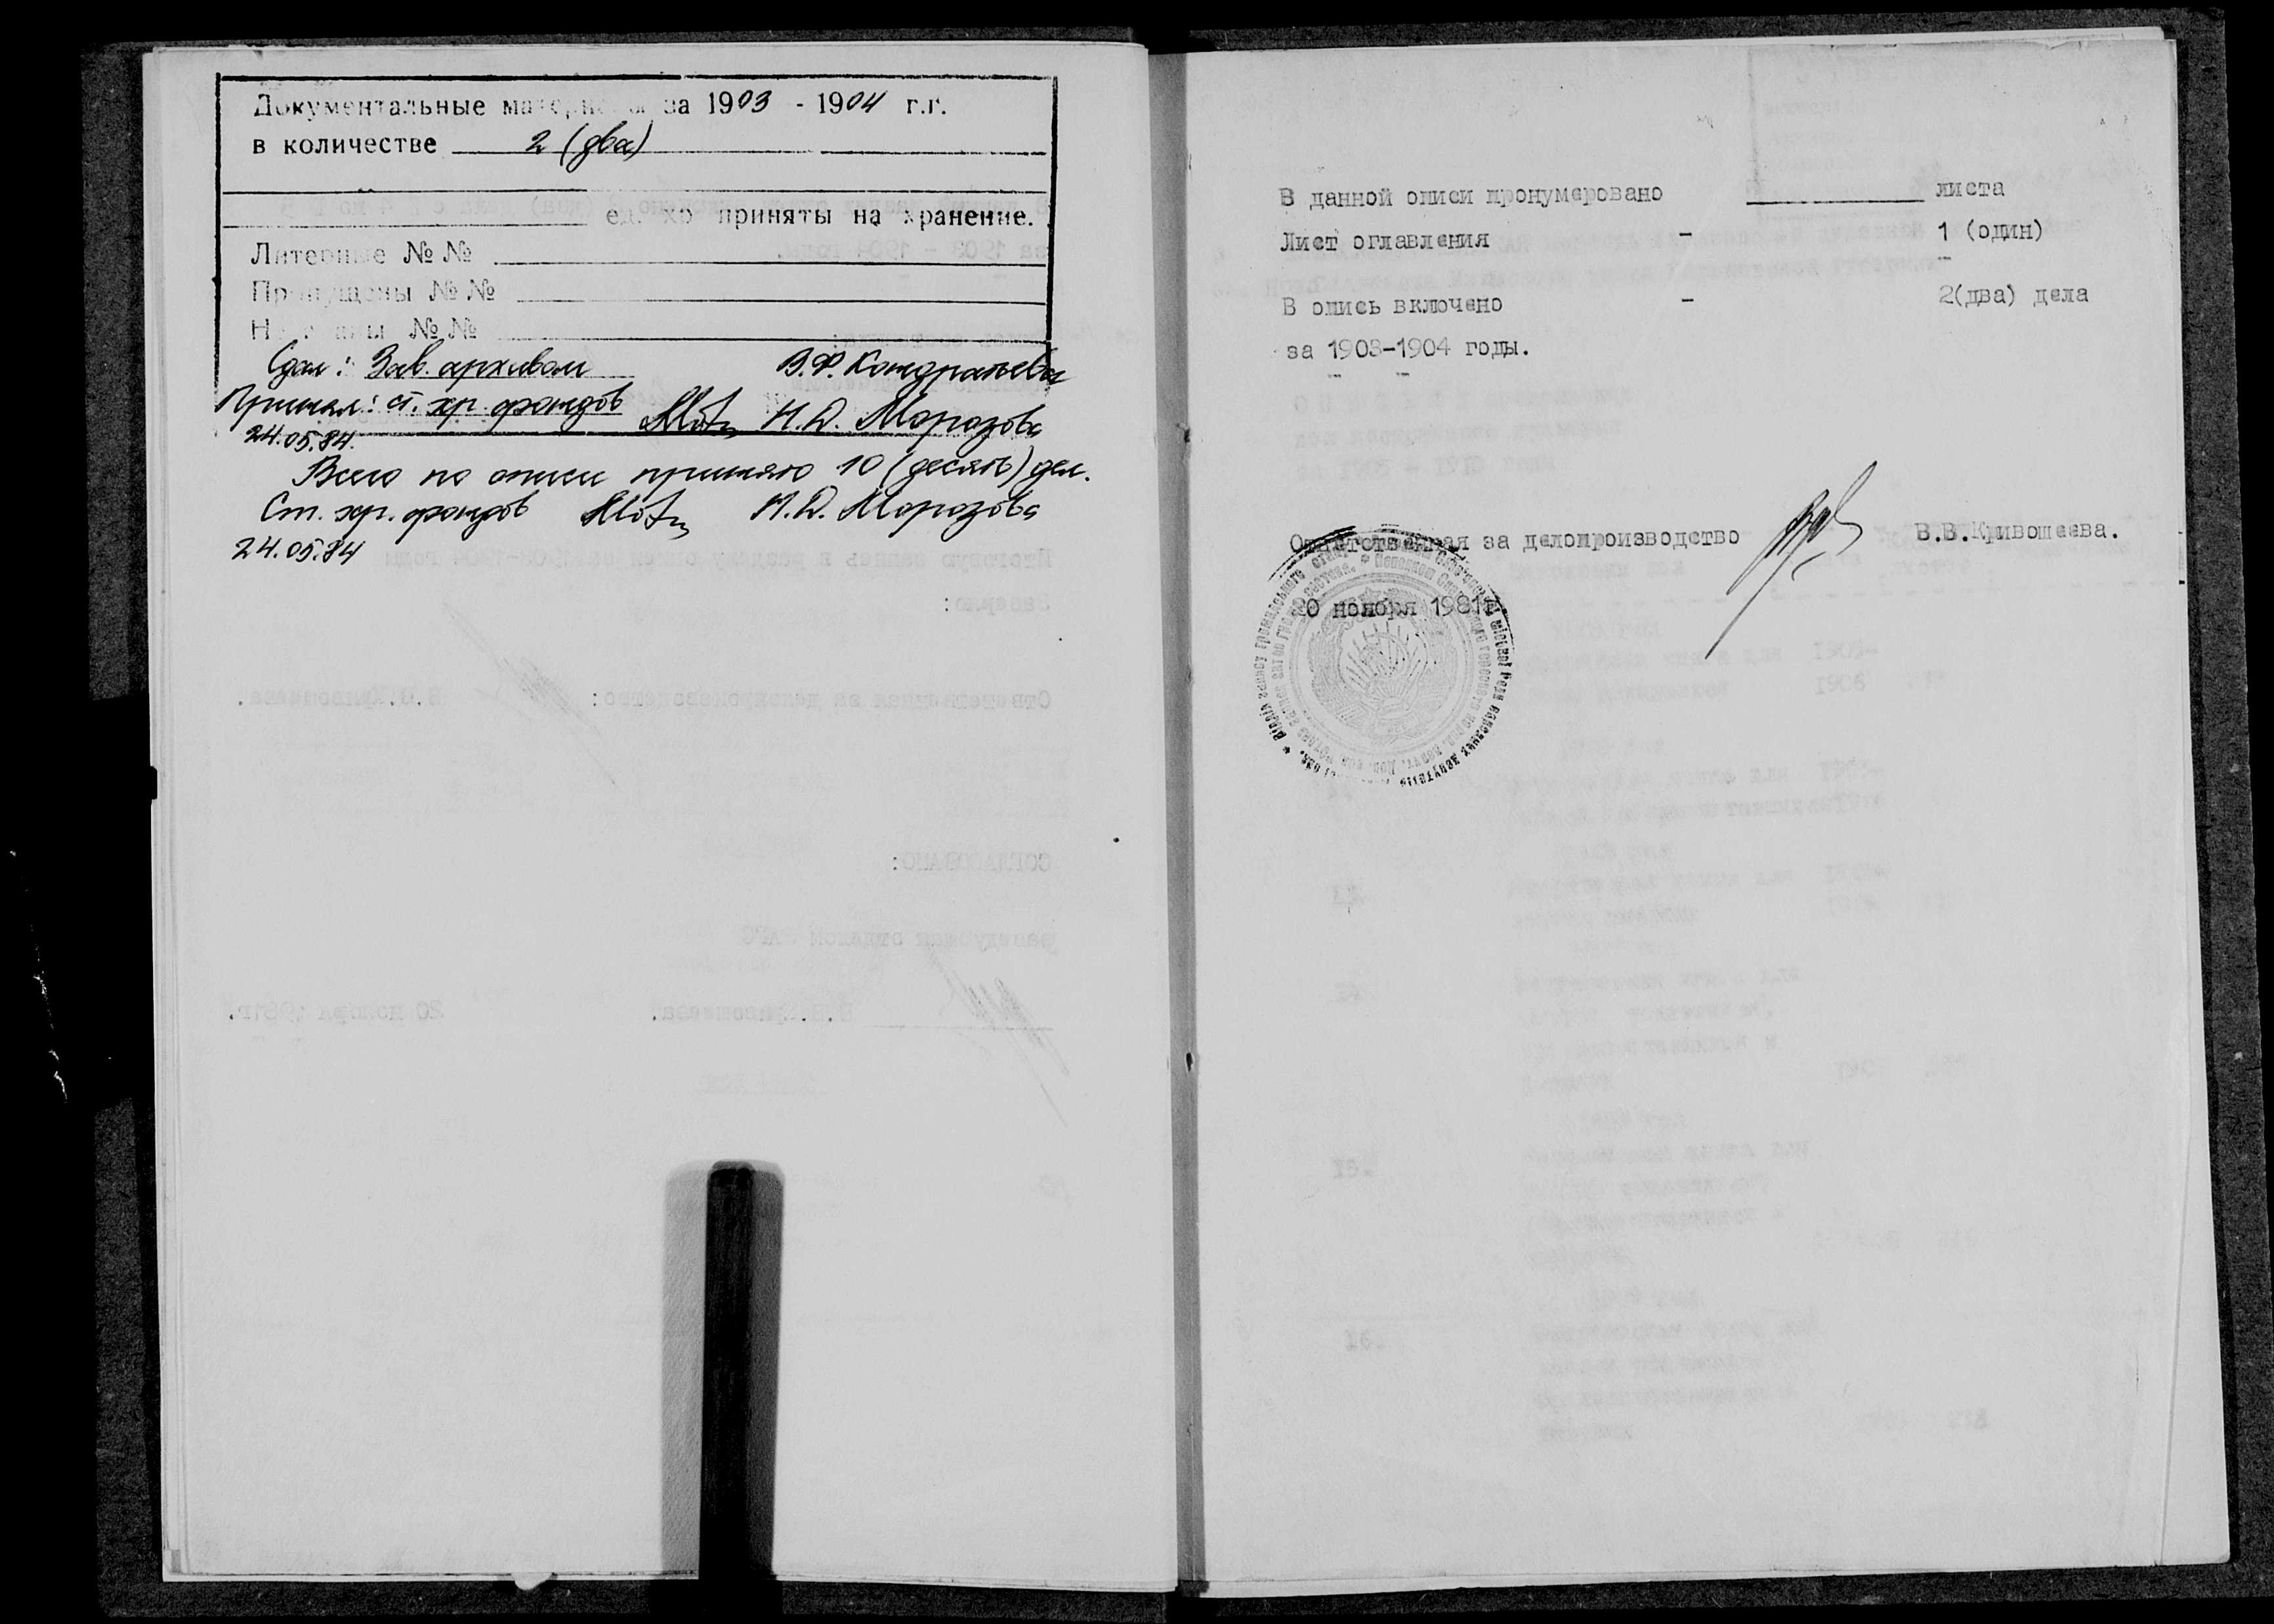 Документальные материалы за 1903 - 1904 г.г.
в количестве 2 (два)
ед. хр приняты на хранение.
Литерные №№
Пропущены №№
№№
Сдал: Зав. архивом В.Ф. Кондратьева
Принял: ст. хр. фондов Н.Д. Морозова
24.05.84.
Всего по описи принято 10 (десять) дел.
Ст. хр. фондов Н.Д. Морозова
24.05.84
В данной описи пронумеровано листа
Лист оглавления - 1 (один)
В опись включено - 2(два) дела
за 1903-1904 годы.
Ответственная за делопроизводство В.В.Кривошеева.
20 ноября 1981г